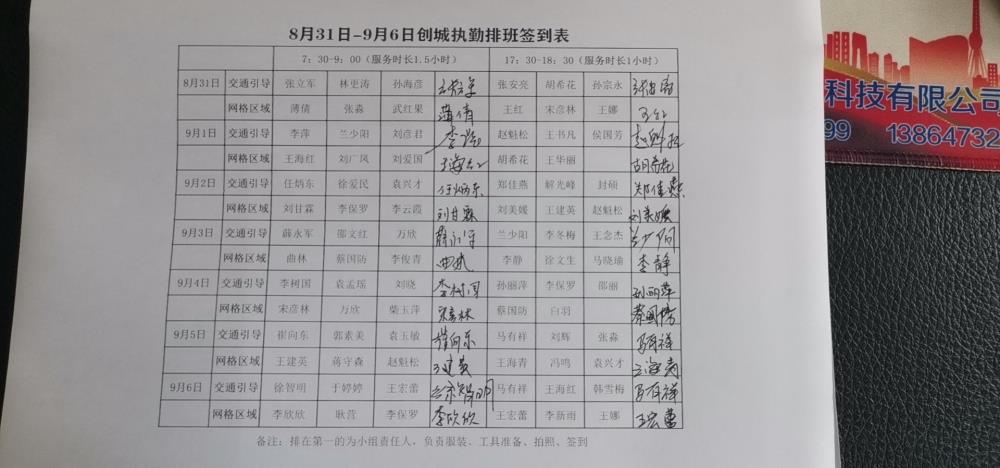 8月31日-9月6日创城执勤排班签到表
7：30-9：00（服务时长1.5小时） 17：30-18：30（服务时长1小时）
8月31日 交通引导 张立军 林更涛 孙海彦 张安亮 胡希花 孙宗永
网格区域 薄倩 张淼 武红果 薄倩 王红 宋彦林 王娜 王红
9月1日 交通引导 李萍 兰少阳 刘彦君 李萍 赵魁松 王书凡 侯国芳 赵魁松
网格区域 王海红 刘广凤 刘爱国 王海红 胡希花 王华丽 胡希花
9月2日 交通引导 任炳东 徐爱民 袁兴才 任炳东 郑佳燕 解光峰 封硕 郑佳燕
网格区域 刘甘霖 李保罗 李云霞 刘甘霖 刘美媛 王建英 赵魁松 刘美媛
9月3日 交通引导 薛永军 邵文红 万欣 薛永军 兰少阳 李冬梅 王念杰 兰少阳
网格区域 曲林 蔡国防 李俊青 李静 徐文生 马晓瑜 李静
9月4日 交通引导 李树国 袁孟瑶 刘晓 李树国 孙丽萍 李保罗 邵丽 孙丽萍
网格区域 宋彦林 万欣 柴玉萍 宋彦林 蔡国防 白羽 蔡国防
9月5日 交通引导 崔向东 郭素美 袁玉敏 崔向东 马有祥 刘辉 张淼 马有祥
网格区域 王建英 蒋守森 赵魁松 王建英 王海青 冯鸣 袁兴才 王海青
9月6日 交通引导 徐智明 于婷婷 王宏蕾 徐智明 马有祥 王海红 韩雪梅 马有祥
网格区域 李欣欣 耿营 李保罗 李欣欣 王宏蕾 李新雨 王娜 王宏蕾
备注：排在第一的为小组责任人，负责服装、工具准备、拍照、签到
科技有限公司
99 13864732